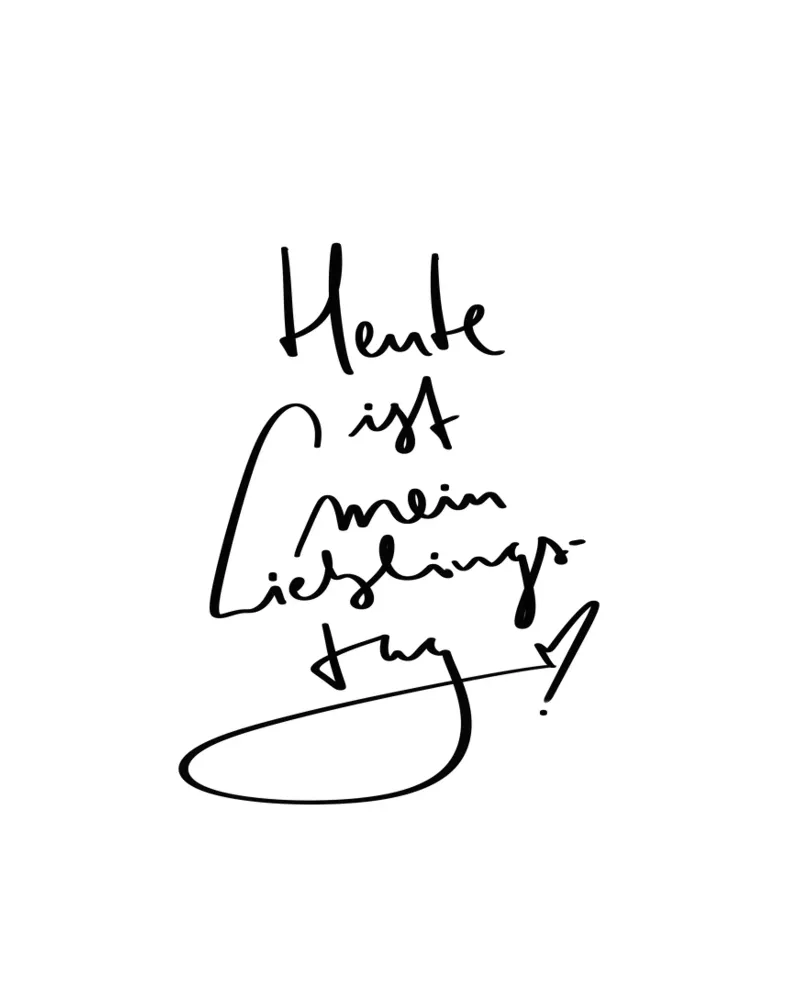 Heute
ist
mein
Lieblings-
tag!